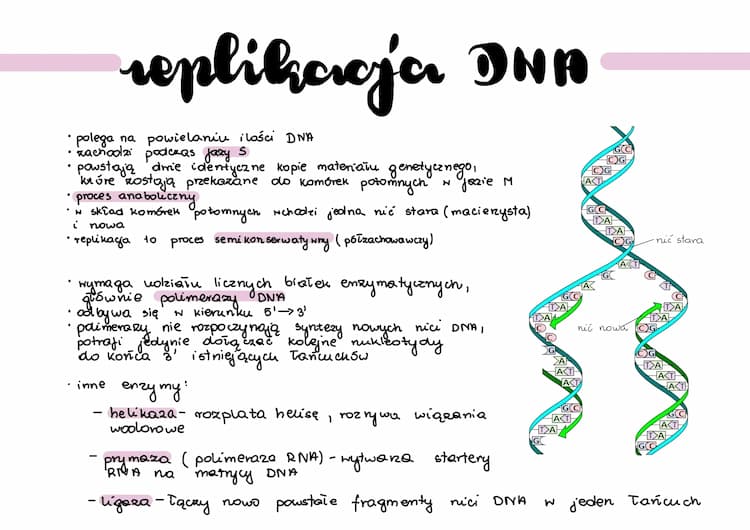 replikacja DNA
• polega na powielaniu ilości DNA
• zachodzi podczas fazy S
• powstają dwie identyczne kopie materiału genetycznego,
które zostają przekazane do komórek potomnych w fazie M
• proces anaboliczny
• w skład komórek potomnych wchodzi jedna nić stara (macierzysta)
i nowa
• replikacja to proces semikonserwatywny (półzachowawczy)
• wymaga udziału licznych białek enzymatycznych,
głównie polimerazy DNA
• odbywa się w kierunku 5'→3'
• polimerazy nie rozpoczynają syntezy nowych nici DNA,
potrafi jedynie dołączać kolejne nukleotydy
do końca 3' istniejących łańcuchów
• inne enzymy:
– helikaza – rozplata helisę, rozrywa wiązania
wodorowe
– prymaza (polimeraza RNA) – wytwarza startery
RNA na matrycy DNA
– ligaza – łączy nowo powstałe fragmenty nici DNA w jeden łańcuch
G C
C G
C G
A T
G C
T A
T A
C G
nić stara
A T
G C
A T
G C C
T A C G
T A nić nowa C G
C
C
G C G
A T A
A T A T
A T A T
G C G C
A T A T
T A T A
G G C